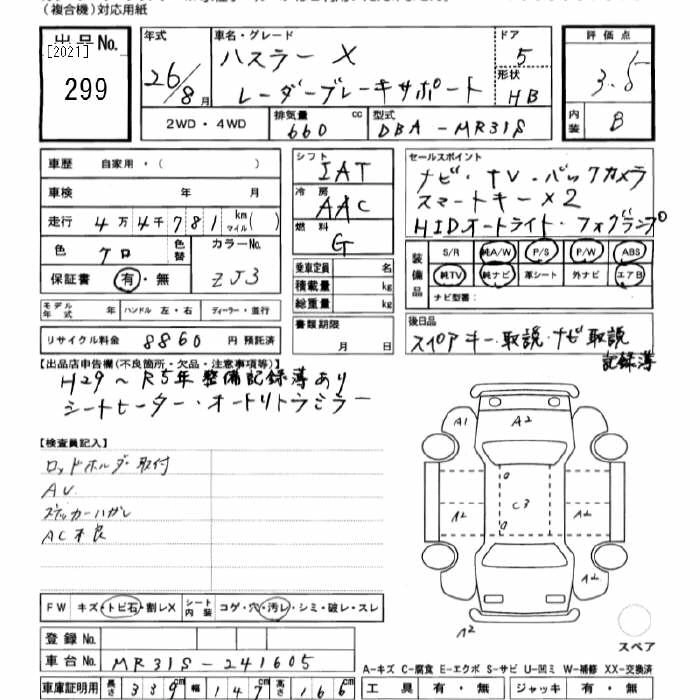 (複合機)対応用紙
出品No. [2021] 299
年式 26/8月
車名・グレード ハスラー X
レーダーブレーキサポート
ドア 5
形状 HB
評価点 3.5
内装 B
2WD・4WD
排気量 660 cc
型式 DBA-MR31S
車歴 自家用・( )
車検 年 月
走行 4万4千781 km マイル( )
色 クロ 色替
カラーNo. ZJ3
保証書 有・無
モデル年式 年 ハンドル 左・右 ディーラー・並行
リサイクル料金 8860 円 預託済
シフト IAT
冷房 AAC
燃料 G
乗車定員 名
積載量 kg
総重量 kg
書類期限
月 日
セールスポイント
ナビ・TV・バックカメラ
スマートキー×2
HIDオートライト・フォグランプ
装備品 S/R 純A/W P/S P/W ABS
純TV 純ナビ 革シート 外ナビ エアB
ナビ型番:
後日品
スペアキー・取説・ナビ取説
記録簿
【出品店申告欄(不良箇所・欠品・注意事項等)】
H29〜R5年整備記録簿あり
シートヒーター・オートリトラミラー
【検査員記入】
ロッドホルダー取付
AV
ステッカーハガレ
AC不良
A1 A2
C3
A2 A2
A2
A2
スペア
FW キズ・トビ石・割レX シート内装 コゲ・穴・汚レ・シミ・破レ・スレ
登録No.
車台No. MR31S-241605
車庫証明用 長さ 339cm 幅 147cm 高さ 166cm
A-キズ C-腐食 E-エクボ S-サビ U-凹ミ W-補修 XX-交換済
工具 有・無 ジャッキ 有・無